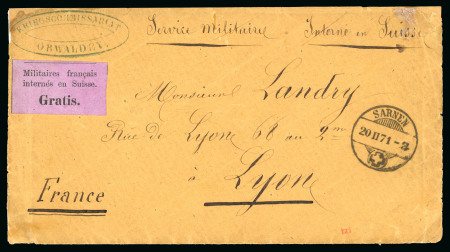 KRIEGSCOMMISSARIAT
OBWALDEN
Service Militaire . Interné en Suisse
Militaires français
internés en Suisse.
Gratis.
Monsieur Landry
Rue de Lyon 68 au 2me
à
Lyon
France
SARNEN
20 II 71 - 3